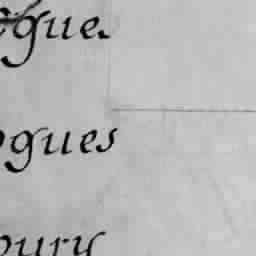 gue.
ogues
oury